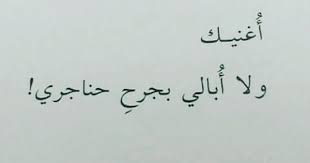 أُغنيـك
ولا أُبالي بجرحِ حناجري!